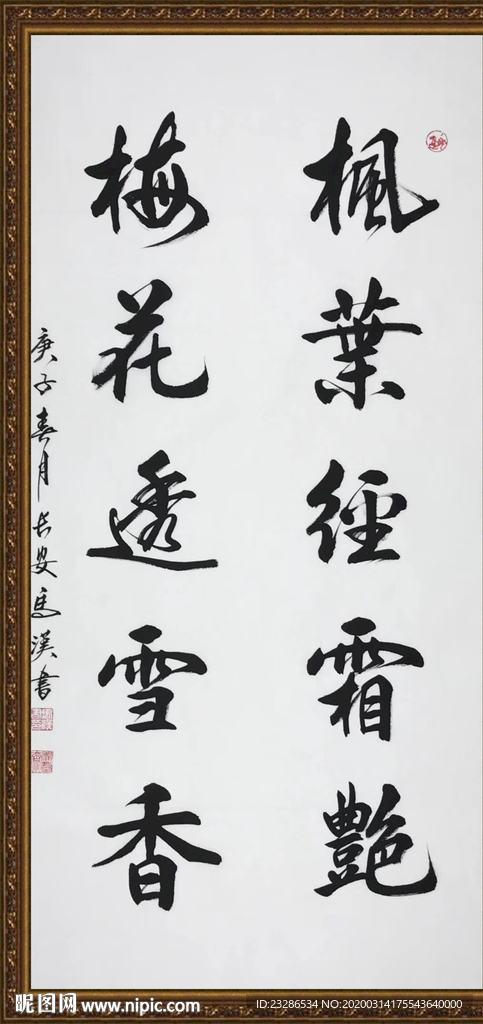 楓葉經霜艷
梅花透雪香
庚子春月长安馬漢書
昵图网 www.nipic.com
ID:23286534 NO:20200314175543640000